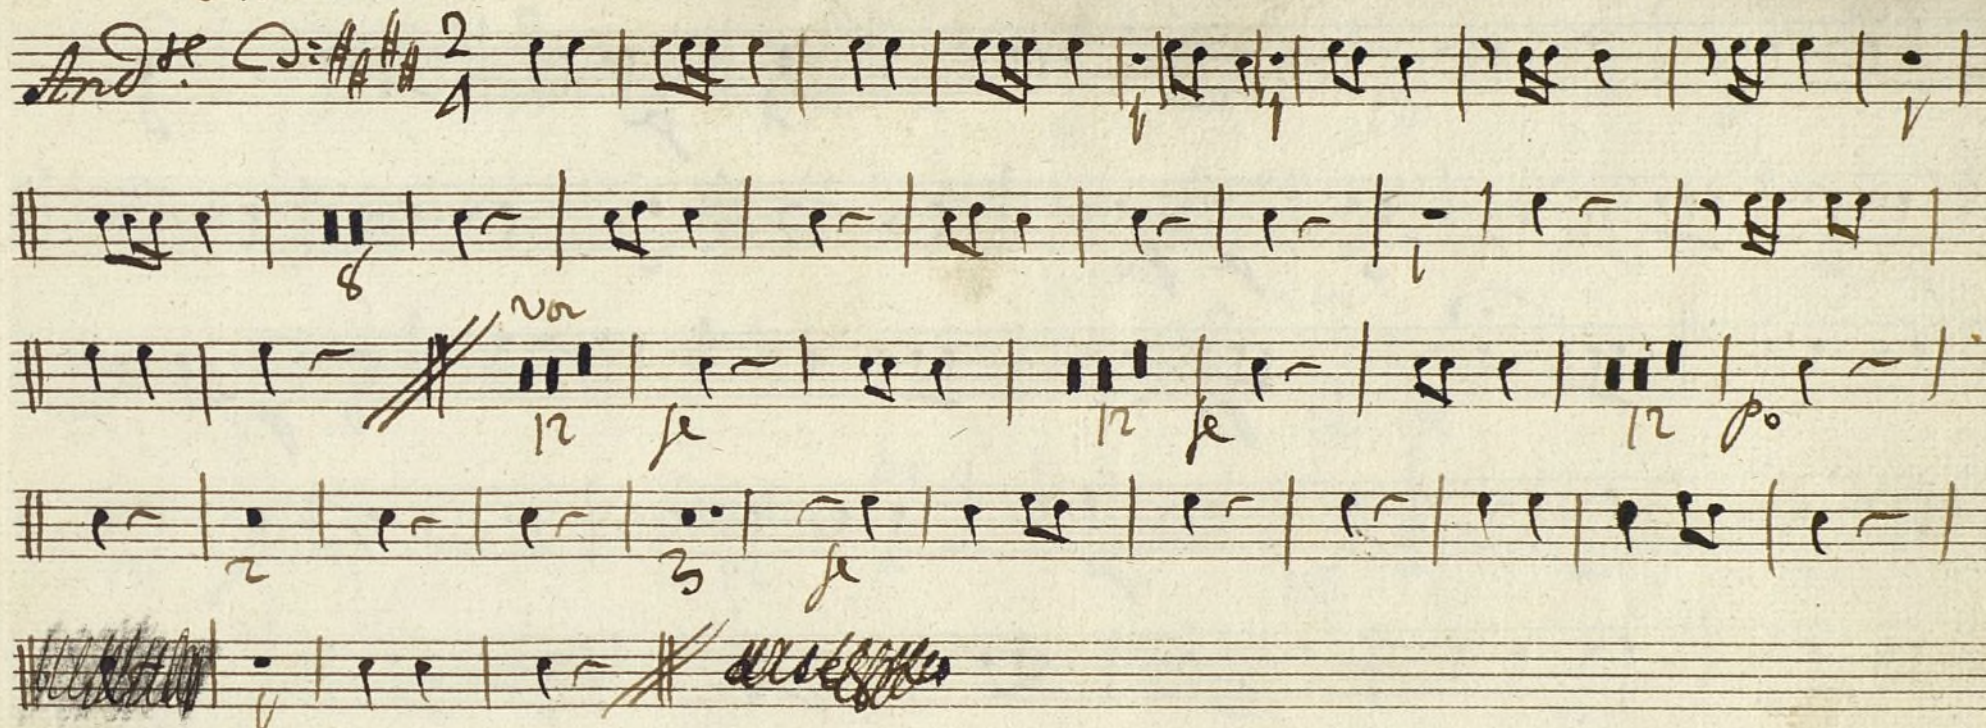 And:te 2 4 1 1 1
8 1
Vor
12 fe 12 fe 12 po
2 3 fe
1